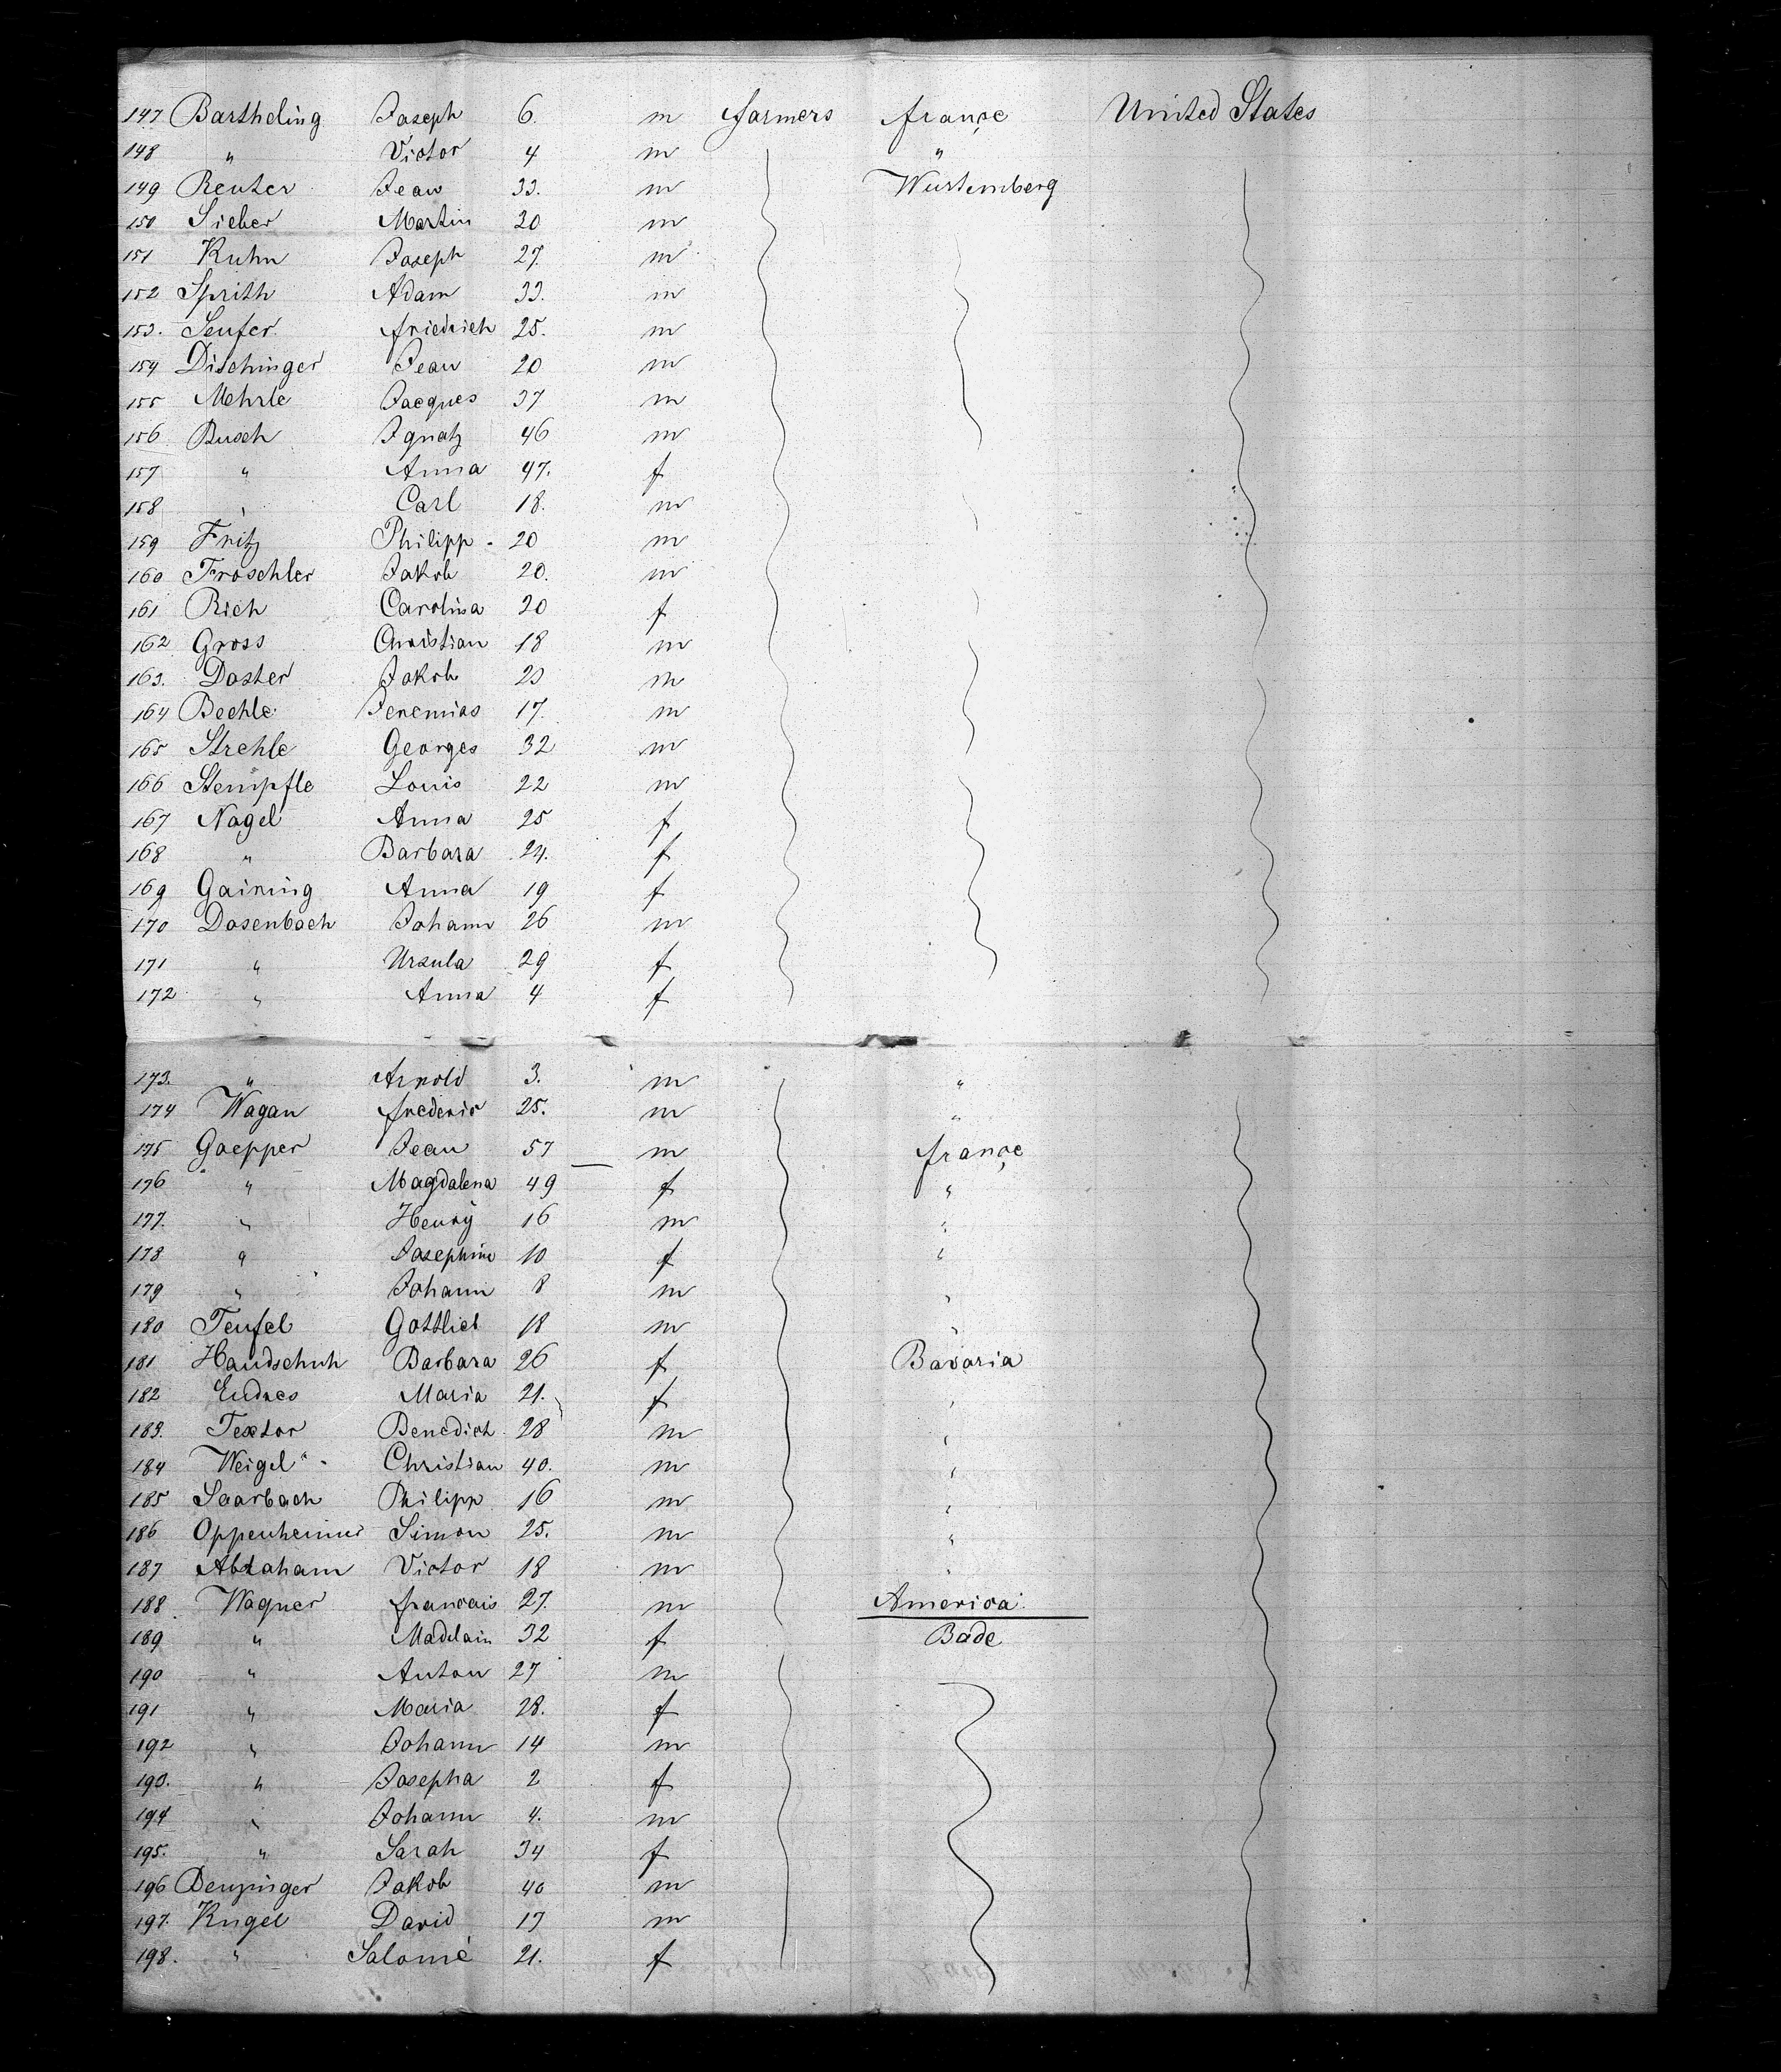 147 Bartheling Joseph 6. m farmers france United States
148 " Victor 4 m "
149 Reuter Jean 33. m Wurtemberg
150 Sieber Martin 20 m
151 Kuhn Joseph 27. m
152 Sprith Adam 33. m
153. Seufer friedrich 25. m
154 Dischinger Jean 20 m
155 Mehrle Jacques 37 m
156 Busch Ignatz 46 m
157 " Anna 47. f
158 " Carl 18. m
159 Fritz Philipp 20 m
160 Froschler Jakob 20. m
161 Rich Carolina 20 f
162 Gross Christian 18 m
163. Doster Jakob 23 m
164 Beehle Jeremias 17. m
165 Strehle Georges 32 m
166 Stempfle Louis 22 m
167 Nagel Anna 25 f
168 " Barbara 24. f
169 Gairing Anna 19 f
170 Dosenbach Johann 26 m
171 " Ursula 29 f
172 " Anna 4 f
173. " Arnold 3. m "
174 Wagan frederic 25. m "
175 Goepper Jean 57 m france
176 " Magdalena 49 f "
177. " Henry 16 m "
178 " Josephine 10 f "
179 " Johann 8 m "
180 Teufel Gottlieb 18 m "
181 Handschuh Barbara 26 f Bavaria
182 Endres Maria 21. f "
183. Textor Benedict 28 m "
184 Weigel Christian 40. m "
185 Saarbach Philipp 16 m "
186 Oppenheimer Simon 25. m "
187 Abraham Victor 18 m "
188 Wagner francais 27. m America
189 " Madelain 32 f Bade
190 " Anton 27 m
191 " Maria 28. f
192 " Johann 14 m
193. " Josepha 2 f
194 " Johann 4. m
195. " Sarah 34 f
196 Denzinger Jakob 40 m
197. Krugel David 17 m
198. " Salomé 21. f